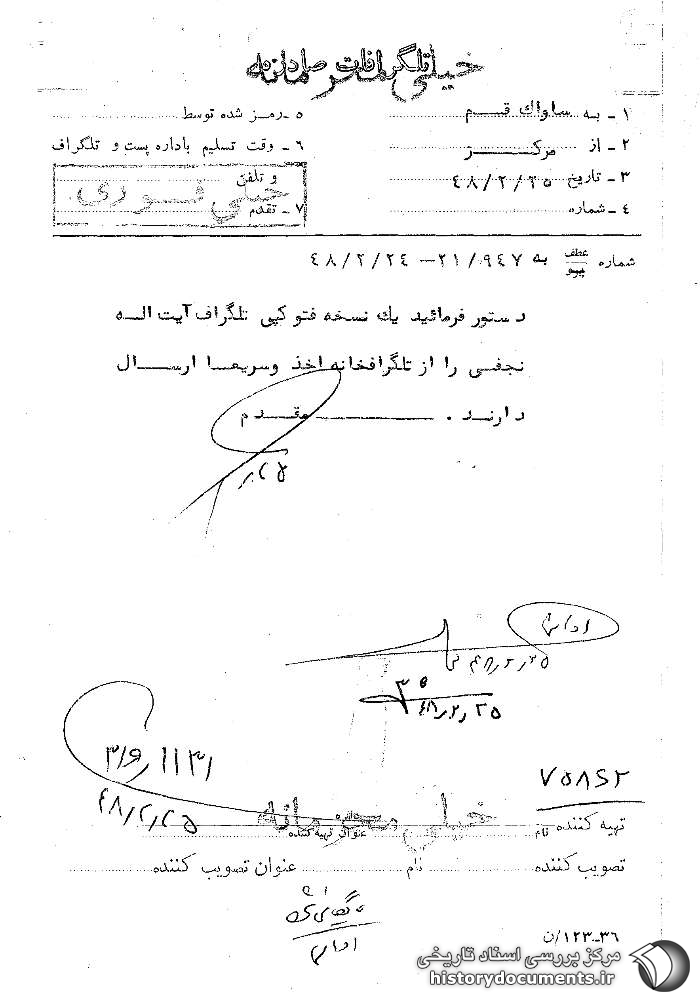 خیلی محرمانه
تلگرافات صادره
۱ - به ساواك قم
۵ - رمز شده توسط
۲ - از مرکز
۶ - وقت تسلیم باداره پست و تلگراف
۳ - تاریخ ۴۸/۲/۲۵
و تلفن
۴ - شماره
۷ - تقدم
خیلی فوری
شماره عطف پیرو به ۲۱/۹۴۷ - ۴۸/۲/۲۴
دستور فرمائید یك نسخه فتوکپی تلگراف آیت اله
نجفی را از تلگرافخانه اخذ وسریعا ارسال
دارند . مقدم
۲۵/۲
۴۸/۲/۲۵
۳۰
۴۸/۲/۲۵
۳۱۱/۹/۳
۴۸/۲/۲۵
۷۵۸۶۲
خیلی محرمانه
تهیه کننده نام عنوان تهیه کننده
تصویب کننده نام عنوان تصویب کننده
۳۶-۱۲۳/ن
مرکز بررسی اسناد تاریخی
historydocuments.ir